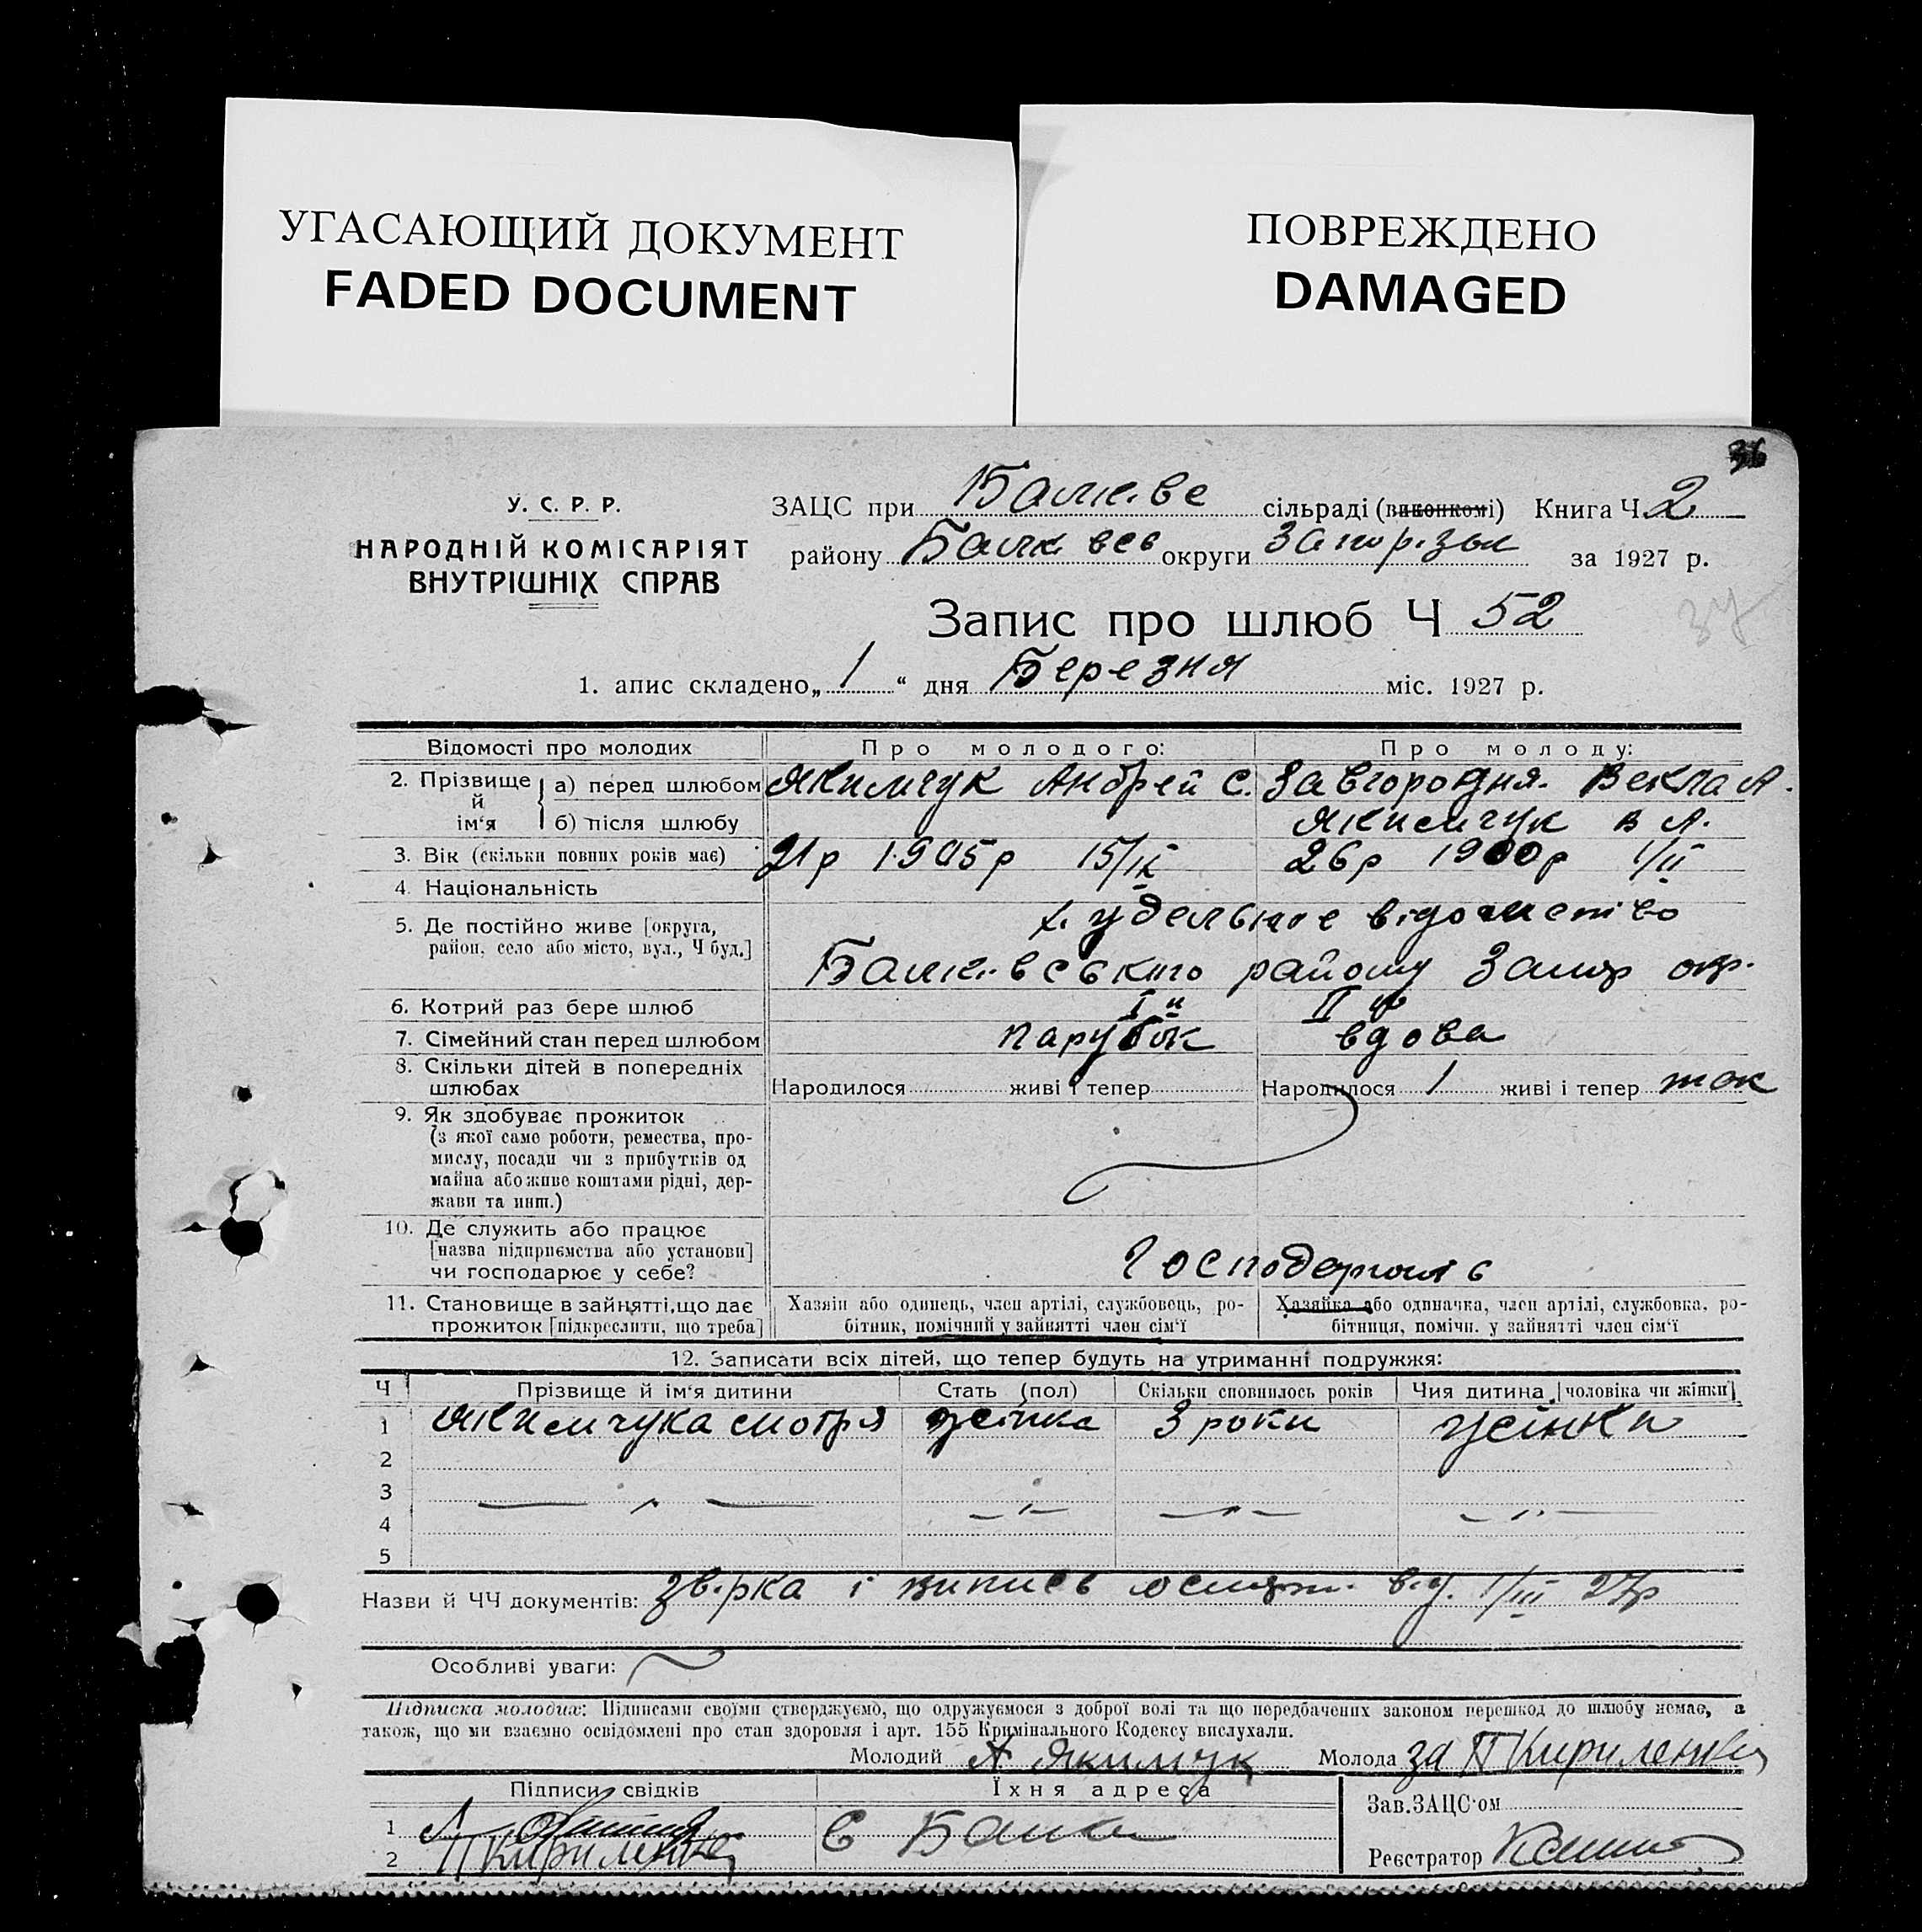 УГАСАЮЩИЙ ДОКУМЕНТ
FADED DOCUMENT
ПОВРЕЖДЕНО
DAMAGED
36
У. С. Р. Р.
НАРОДНІЙ КОМІСАРІЯТ
ВНУТРІШНІХ СПРАВ
ЗАЦС при сільраді (виконкомі) Книга Ч 2
району округи за 1927 р.
Запис про шлюб Ч 52
37
1. апис складено „ 1 “ дня Березня міс. 1927 р.
Відомості про молодих Про молодого: Про молоду:
2. Прізвище й ім'я а) перед шлюбом Якимчук Андрей С. Завгородня Векла А.
б) після шлюбу Якимчук В А.
3. Вік (скільки повних років має) 21 р 1905 р 15/IX 26 р 1900 р 1/II
4. Національність
5. Де постійно живе [округа, район, село або місто, вул., Ч буд.] х. удельное відомство
району Запор окр.
6. Котрий раз бере шлюб I й II й
7. Сімейний стан перед шлюбом парубок вдова
8. Скільки дітей в попередніх шлюбах Народилося живі і тепер Народилося 1 живі і тепер так
9. Як здобуває прожиток
(з якої саме роботи, ремества, про-
мислу, посади чи з прибутків од
майна або живе коштами рідні, дер-
жави та инш.)
10. Де служить або працює
[назва підприємства або установи]
чи господарює у себе?
11. Становище в зайнятті, що дає
прожиток [підкреслити, що треба]
Хазяїн або одинець, член артілі, службовець, ро-
бітник, помічний у зайнятті член сім'ї
Хазяйка або одиначка, член артілі, службовка, ро-
бітниця, помічн. у зайнятті член сім'ї
12. Записати всіх дітей, що тепер будуть на утриманні подружжя:
Ч Прізвище й ім'я дитини Стать (пол) Скільки сповнилось років Чия дитина [чоловіка чи жінки]
1 Якимчука мотря жінка 3 роки жінки
2
3
4
5
Назви й ЧЧ документів: і випись 1/III 27р
Особливі уваги:
Підписка молодих: Підписами своїми стверджуємо, що одружуємося з доброї волі та що передбачених законом перешкод до шлюбу немає, а
також, що ми взаємно освідомлені про стан здоровля і арт. 155 Кримінального Кодексу вислухали.
Молодий А Якимчук Молода за П Кириленко
Підписи свідків Їхня адреса
Зав. ЗАЦС'ом
1
2 П Кириленко
Реєстратор